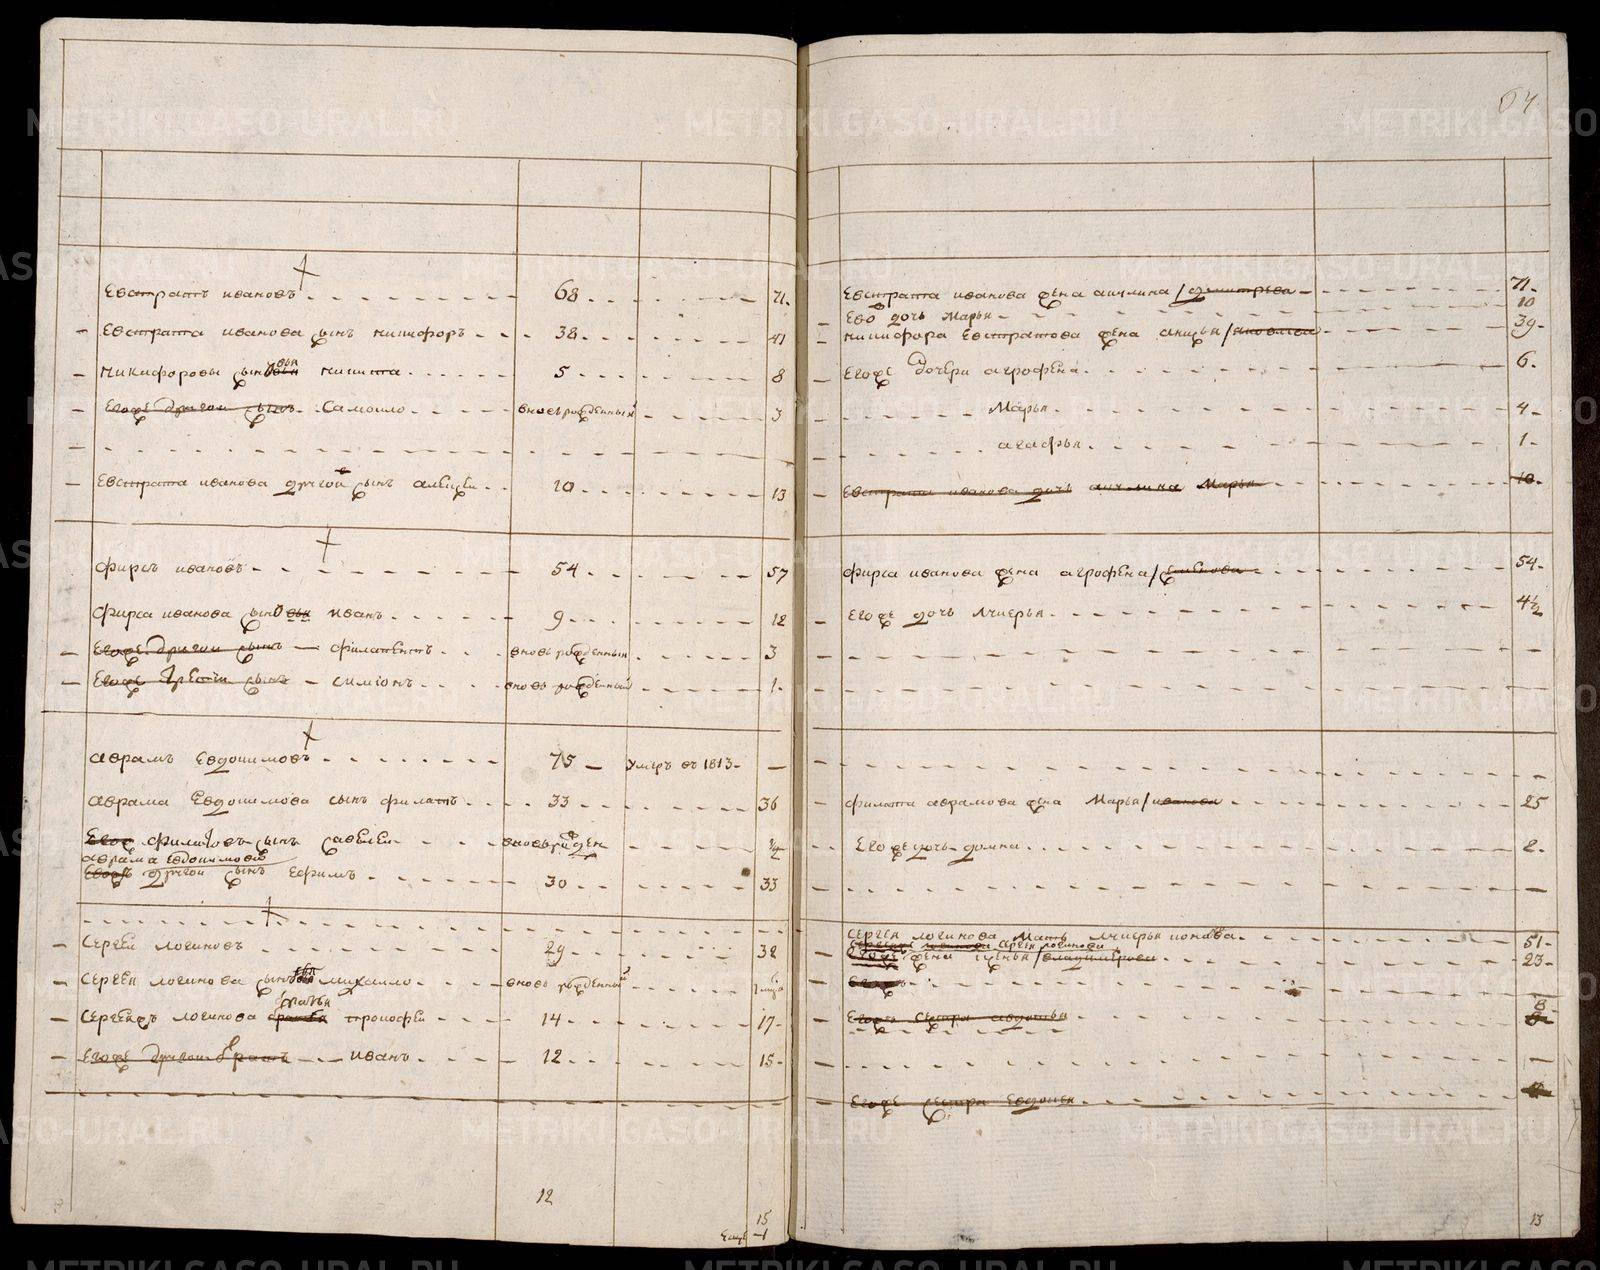 64
Евстратъ ивановъ 68 71
Евстрата иванова сынъ никифоръ 38 41
никифоровы сыновья никита 5 8
Егоже другои сынъ Самоило вновьрожденныи 3
Евстрата иванова другои сынъ алексеи 10 13
фирсъ ивановъ 54 57
фирса иванова сыновья иванъ 9 12
Егоже другои сынъ филатентъ вновь рожденныи 3
Егоже третеи сынъ симионъ вновь рожденныи 1
аврамъ Евдокимовъ 75 умеръ въ 1813
аврама Евдокимова сынъ филатъ 33 36
филатовъ сынъ савелеи вновьрожден
аврама Евдокимова
другои сынъ Ефимъ 30 33
Сергеи логиновъ 29 32
Сергея логинова сыновья михаило вновь рожденныи
братья
Сергеихъ логинова трокофеи 14 17
Егоже другои братъ иванъ 12 15
12
15
Еще 1
Евстрата иванова жена акилина 71
Ево дочь Марья 10
никифора Евстратова жена яковлева 39
Егоже дочери агрофена 6
Марья 4
агафья 1
Евстрата иванова дочь акилина Марья 10
фирса иванова жена агрофена 54
Егоже дочь лукерья 4½
филата аврамова жена Марья иванова 25
Егоже дочь домна 2
Сергея логинова мать лукерья 51
Сергея логинова
жена владимерова 23
Егоже сестра авдотья 8
Егоже сестра Евдокея
13
METRIKI.GASO-URAL.RU